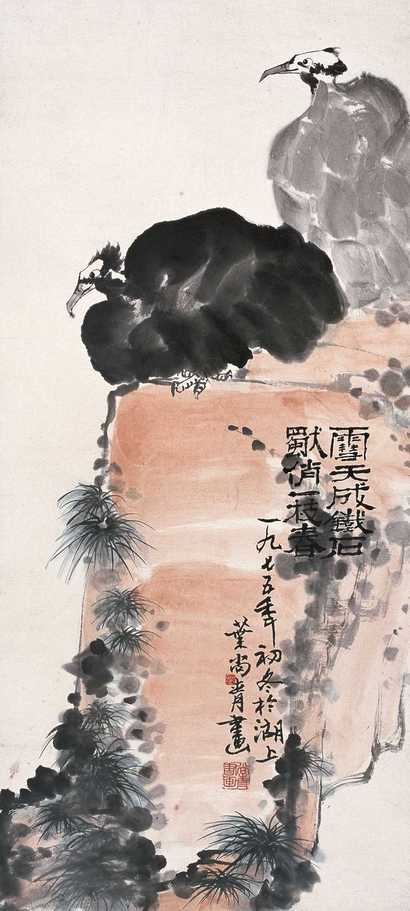 雪天成鐵石
獸俏一枝春
一九七五年初冬於湖上
葉尚青畫